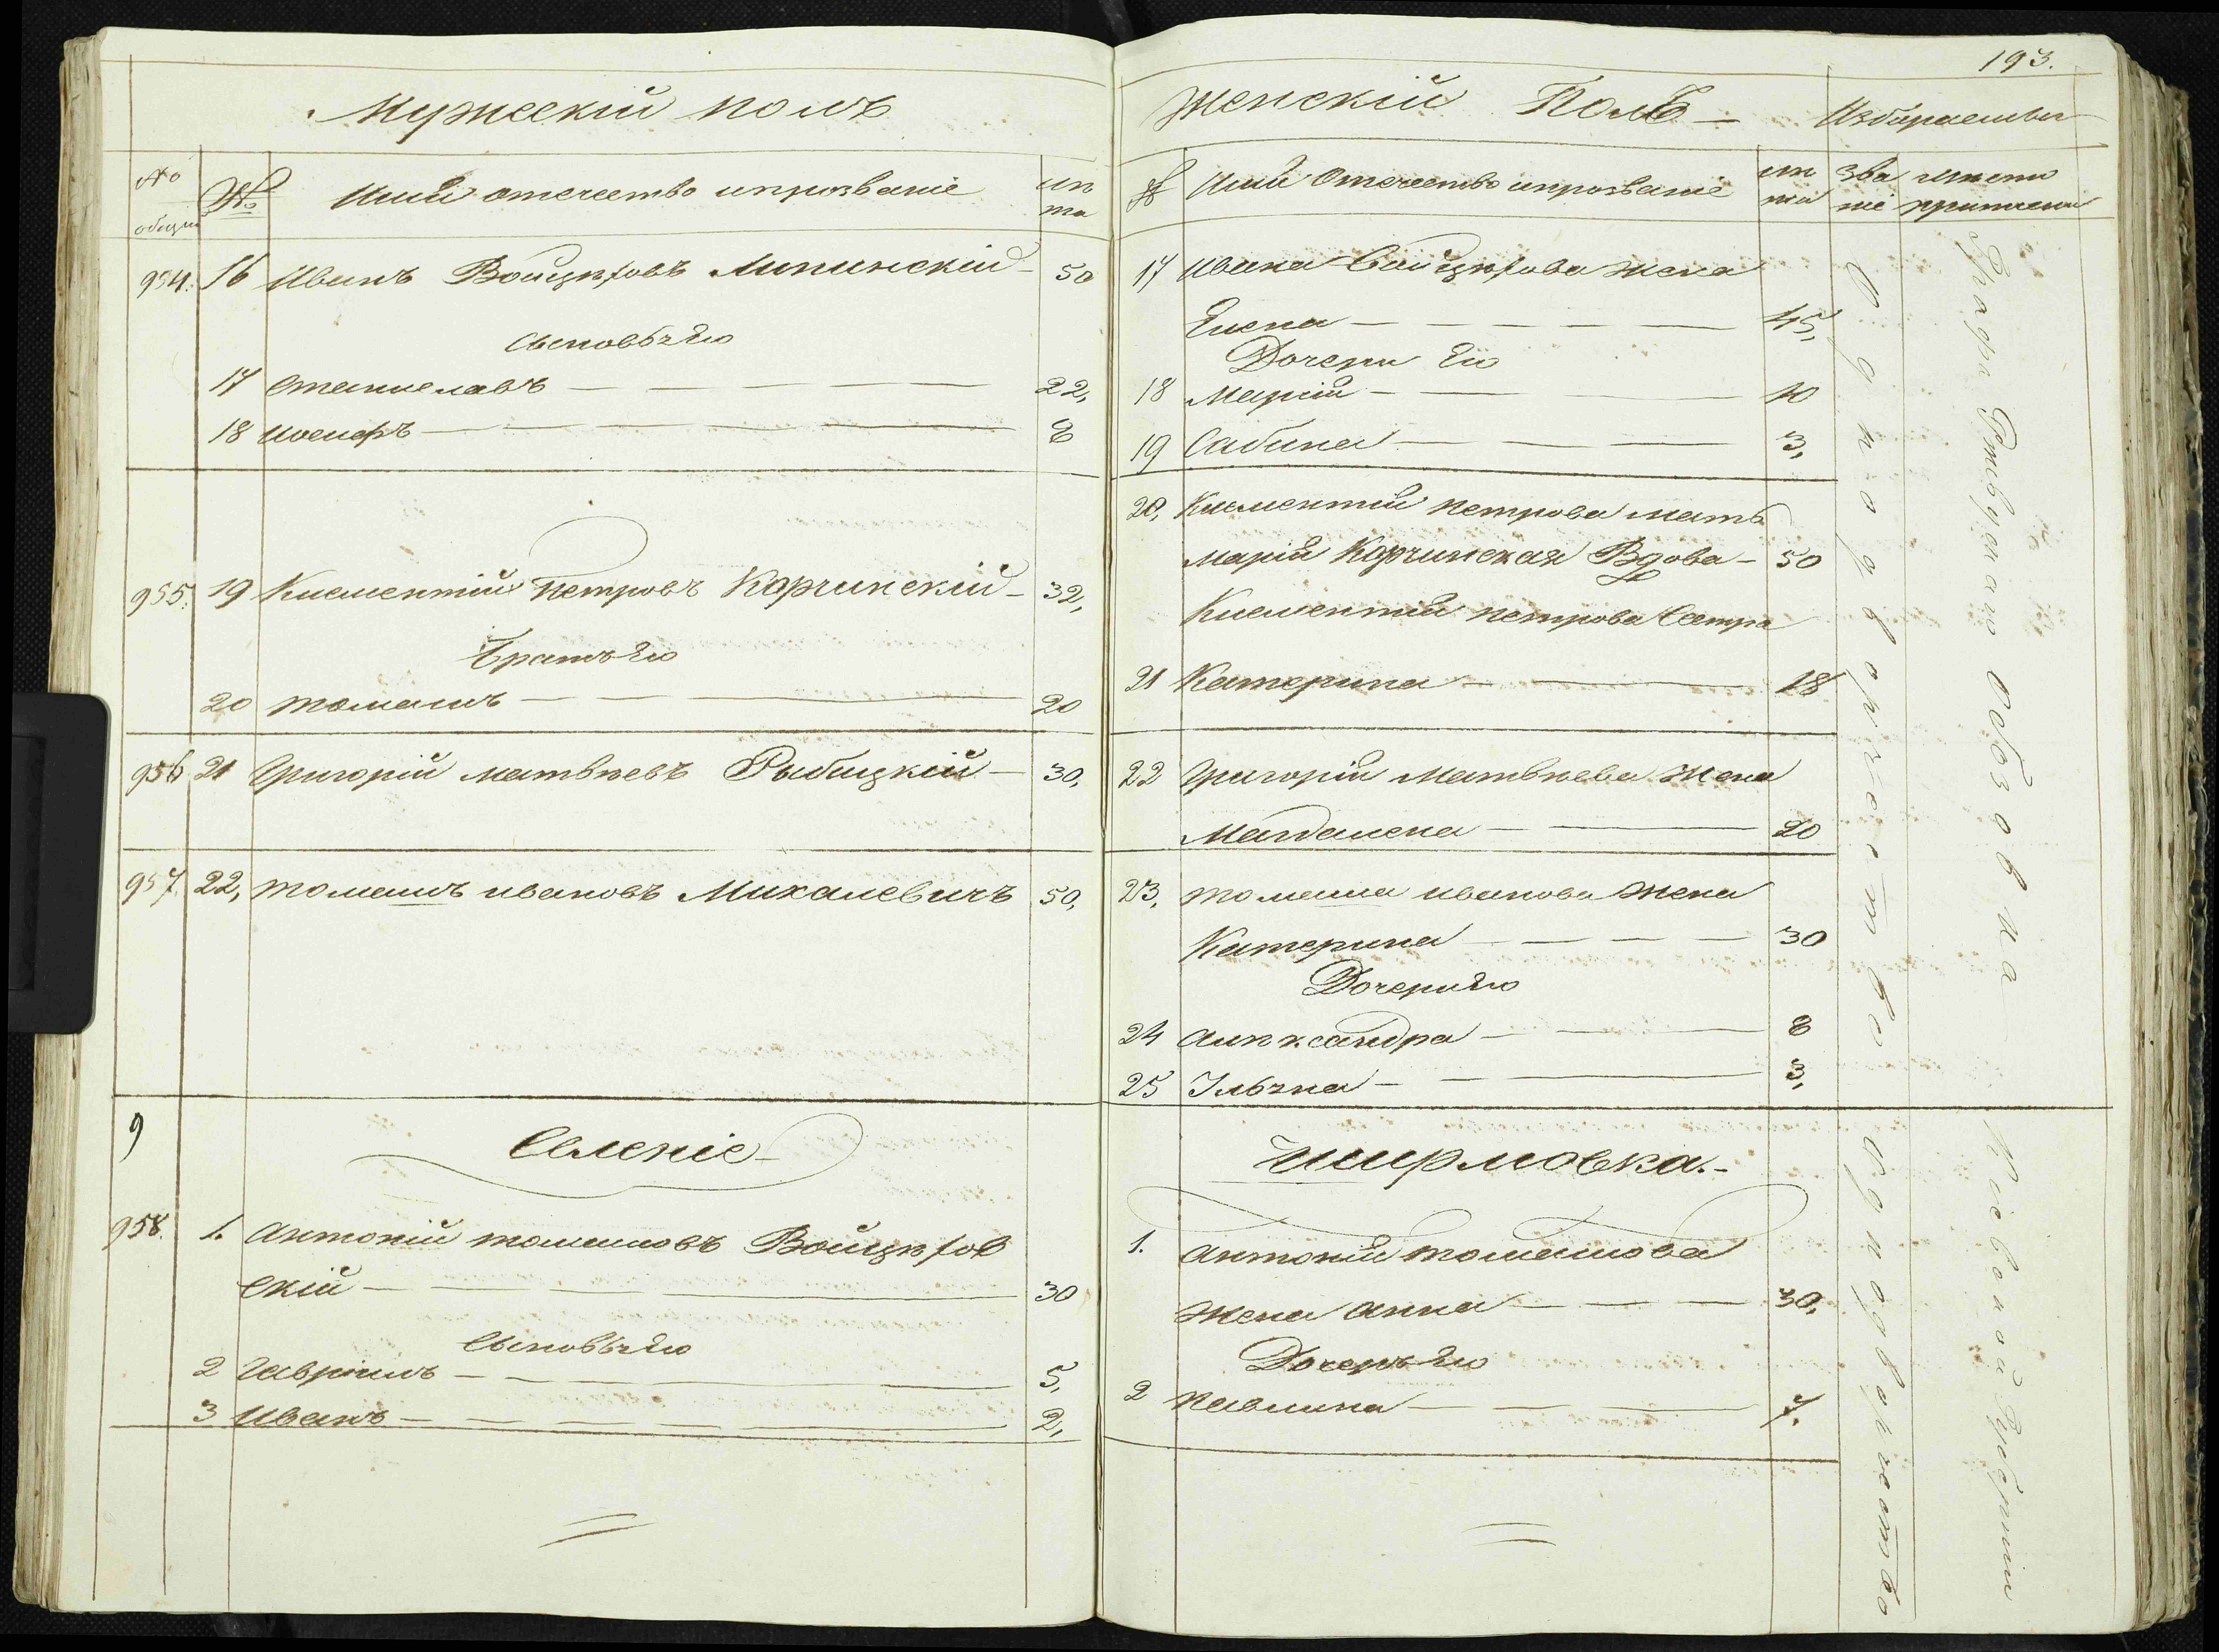 193.
Мужескій полъ
№ общій
№
Имя отечество ипрозваніе
лѣта
954. 16 Иванъ Войцѣховъ Липинскій — 50
Сыновья Его
17 Станиславъ — 22,
18 Иосифъ — 8
955. 19 Клементій Петровъ Корчинскій — 32,
Братъ Его
20 томашъ — 20
956 21 Григорій матвѣевъ Рыбицкій — 30,
957. 22, томашъ ивановъ Михалевичъ 50,
9
Селеніе
958. 1. Антоній томашовъ Войцѣхов
скій — 30
Сыновья Его
2 Гавріилъ — 5,
3 Иванъ — 2,
Женскій Полъ —
Избираемыи
№
Имя Отечество ипрозваніе
лѣта
званіе
17 Ивана Войцѣхова жена
Елена — 45,
Дочери Его
18 Марія — 10
19 Сабина — 3,
20, Клементія петрова мать
марія Корчинская Вдова — 50
Клементія петрова Сестра
21 Катерина — 18
22 Григорія Матвѣева Жена
Магдалена — 20
23, томаша иванова Жена
Катерина — 30
Дочери Его
24 Алѣксандра — 8
25 — 3,
Чширмовка.
1. Антонія томашова
Жена Анна — 30,
Дочерь Его
2 павлина — 7.
Однодворчество
Графа Осбовна
Однодворчество
Кіевской Губерніи